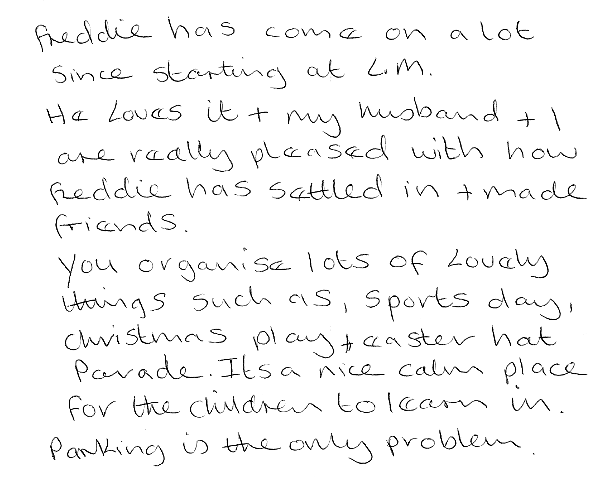 Freddie has come on a lot
since starting at L.M.
He loves it + my husband + I
are really pleased with how
Freddie has settled in + made
friends.
You organise lots of lovely
things such as, sports day,
christmas play + easter hat
Parade. Its a nice calm place
for the children to learn in.
Parking is the only problem.